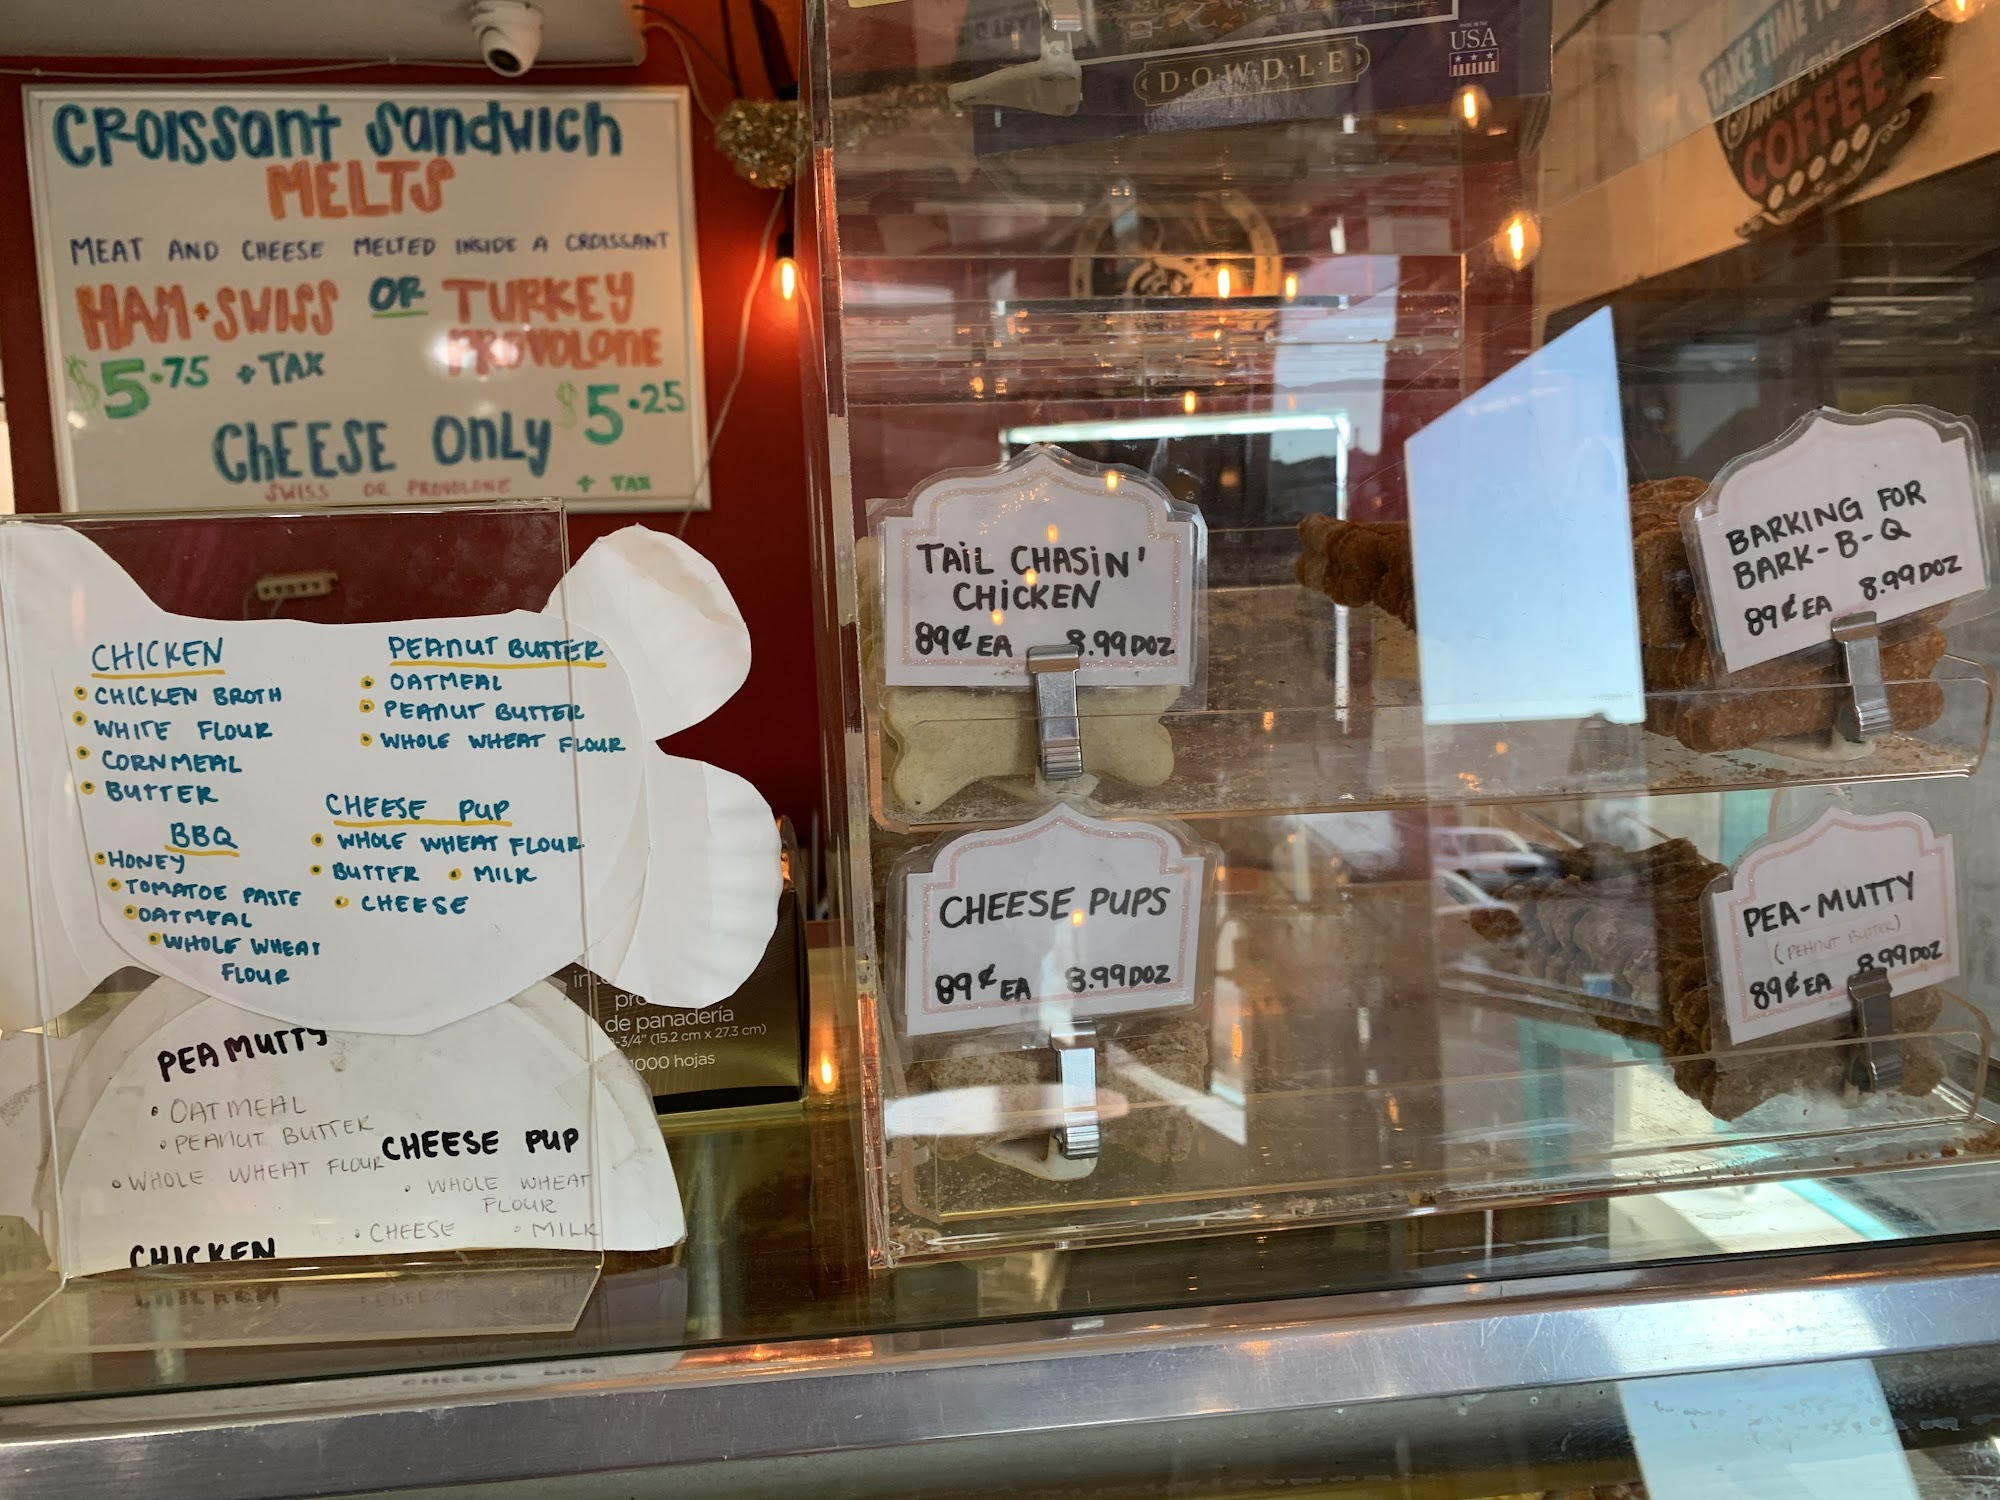 CROISSANT SANDWICH
MELTS
MEAT AND CHEESE MELTED INSIDE A CROISSANT
HAM + SWISS OR TURKEY
PROVOLONE
$5.75 + TAX
$5.25
CHEESE ONLY
SWISS OR PROVOLONE + TAX
D·O·W·D·L·E
MADE IN THE
USA
TAKE TIME TO
THE
COFFEE
CHICKEN
CHICKEN BROTH
WHITE FLOUR
CORNMEAL
BUTTER
BBQ
HONEY
TOMATOE PASTE
OATMEAL
WHOLE WHEAT
FLOUR
PEANUT BUTTER
OATMEAL
PEANUT BUTTER
WHOLE WHEAT FLOUR
CHEESE PUP
WHOLE WHEAT FLOUR
BUTTER • MILK
CHEESE
PEA MUTTY
• OATMEAL
• PEANUT BUTTER
• WHOLE WHEAT FLOUR
CHEESE PUP
• WHOLE WHEAT
FLOUR
• CHEESE • MILK
CHICKEN
de panadería
-3/4" (15.2 cm x 27.3 cm)
1000 hojas
TAIL CHASIN'
CHICKEN
89¢ EA 8.99 DOZ
BARKING FOR
BARK-B-Q
89¢ EA 8.99 DOZ
CHEESE PUPS
89¢ EA 8.99 DOZ
PEA-MUTTY
(PEANUT BUTTER)
89¢ EA 8.99 DOZ